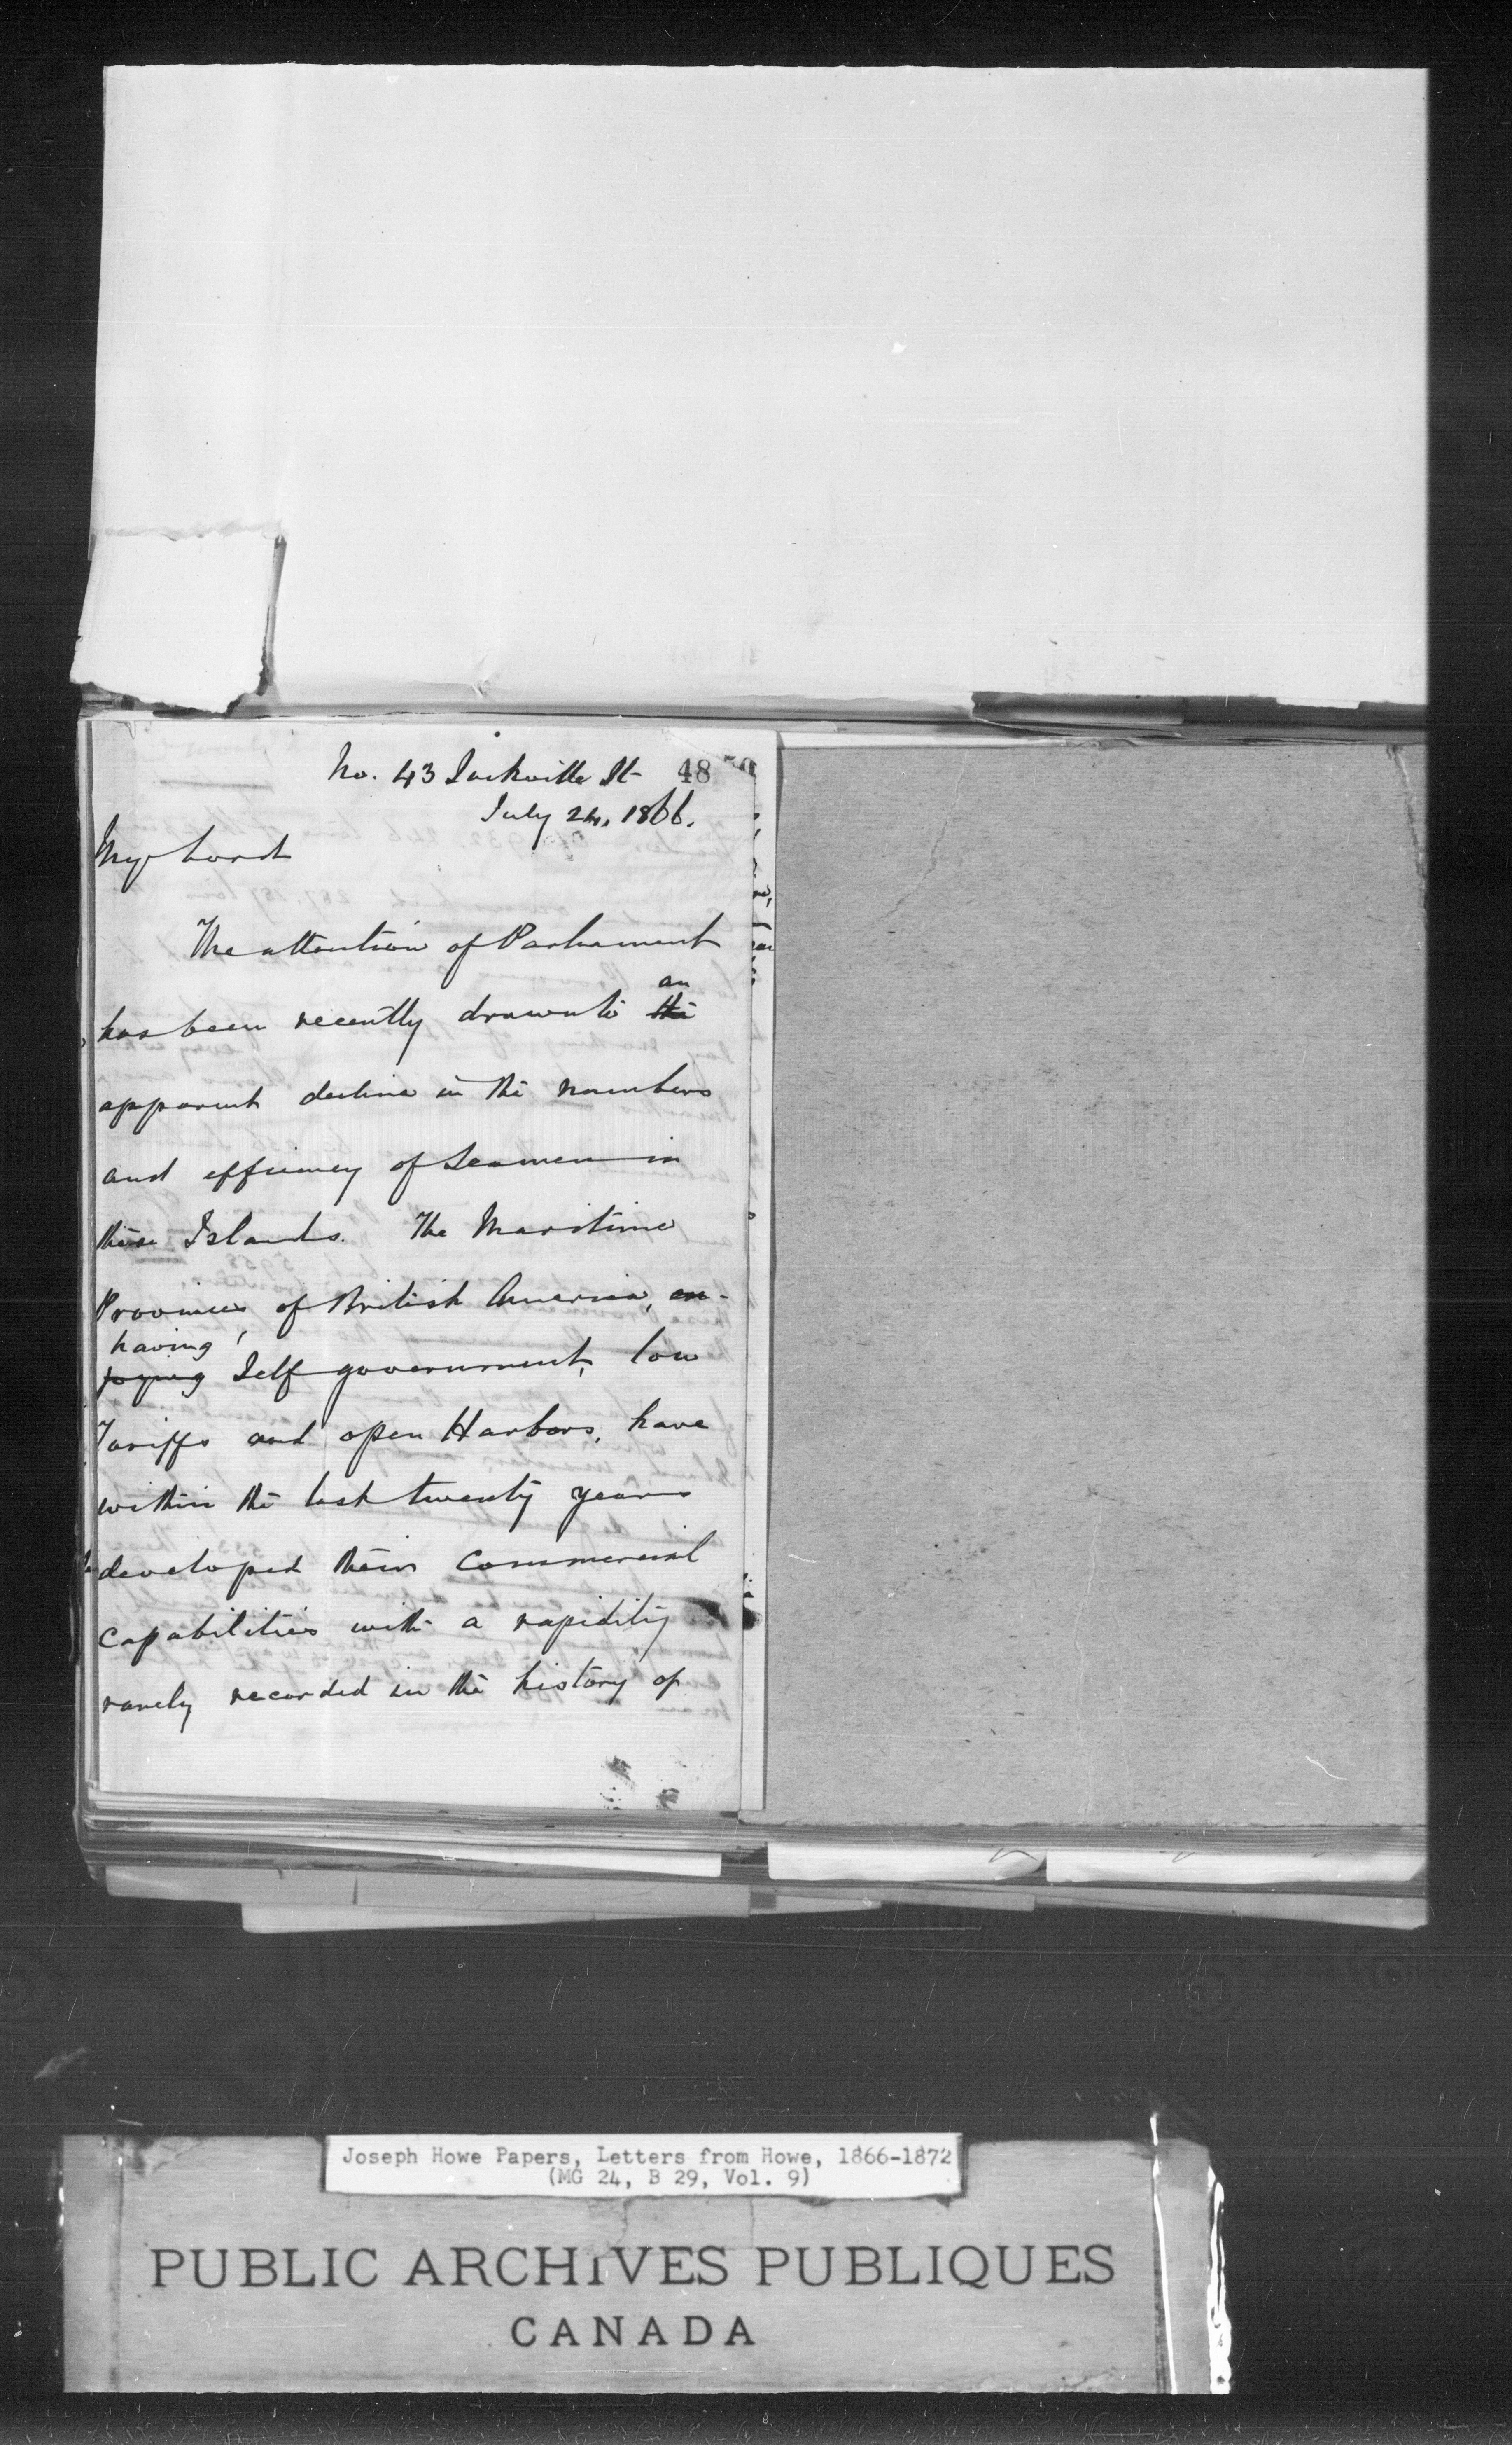 No. 43 Sackville St 48
July 24, 1866.
My Lord
The attention of Parliament
an
has been recently drawn to the
apparent decline in the numbers
and efficiency of Seamen in
these Islands. The Maritime
Provinces of British America, en-
having
joying Self government, low
Tariffs and open Harbors, have
within the last twenty years
developed their Commercial
capabilities with a rapidity
rarely recorded in the history of
Joseph Howe Papers, Letters from Howe, 1866-1872
(MG 24, B 29, Vol. 9)
PUBLIC ARCHIVES PUBLIQUES
CANADA